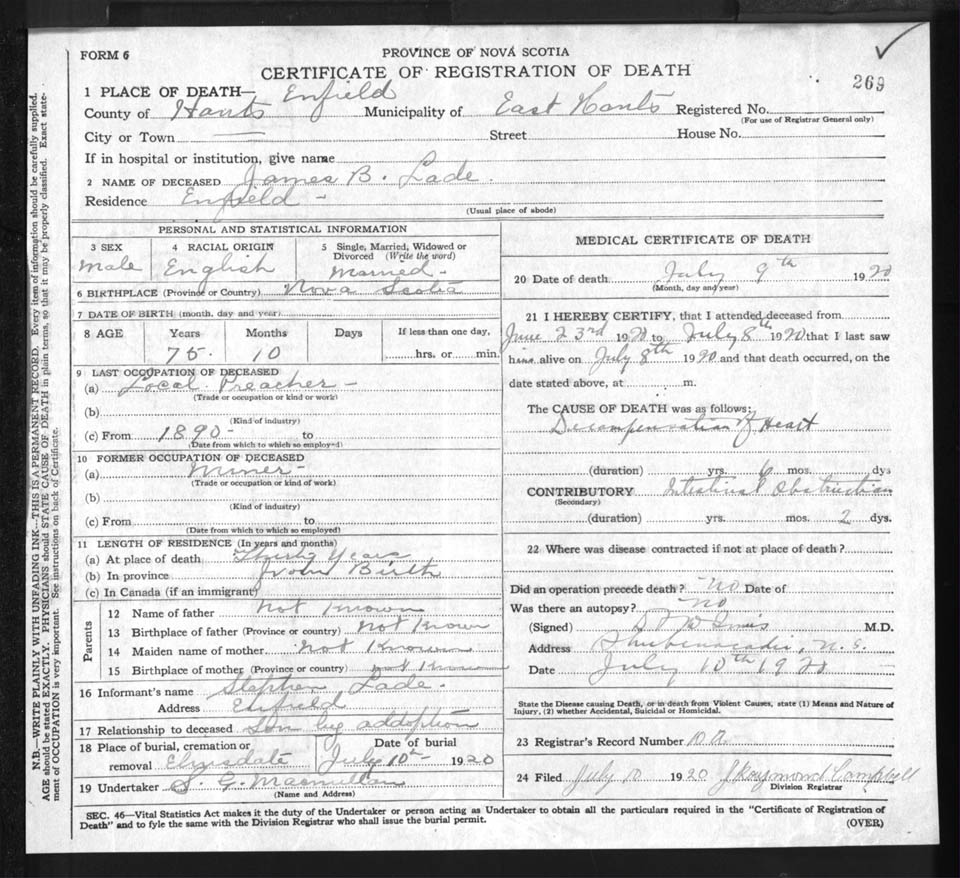 FORM 6
PROVINCE OF NOVA SCOTIA
CERTIFICATE OF REGISTRATION OF DEATH
269
1 PLACE OF DEATH— Enfield
County of Hants Municipality of East Hants Registered No.
(For use of Registrar General only)
City or Town — Street House No.
If in hospital or institution, give name
2 NAME OF DECEASED James B. Lade.
Residence Enfield -
(Usual place of abode)
PERSONAL AND STATISTICAL INFORMATION
3 SEX 4 RACIAL ORIGIN 5 Single, Married, Widowed or Divorced (Write the word)
Male English Married -
6 BIRTHPLACE (Province or Country) Nova Scotia
7 DATE OF BIRTH (month, day and year)
8 AGE Years Months Days If less than one day,
75. 10 hrs. or min.
9 LAST OCCUPATION OF DECEASED
(a) Local Preacher -
(Trade or occupation or kind or work)
(b)
(Kind of industry)
(c) From 1890 - to
(Date from which to which so employed)
10 FORMER OCCUPATION OF DECEASED
(a) Miner -
(Trade or occupation or kind of work)
(b)
(Kind of industry)
(c) From to
(Date from which to which so employed)
11 LENGTH OF RESIDENCE (In years and months)
(a) At place of death Thirty Years
(b) In province From Birth
(c) In Canada (if an immigrant)
Parents
12 Name of father Not Known
13 Birthplace of father (Province or country) Not Known
14 Maiden name of mother Not Known
15 Birthplace of mother (Province or country) Not Known
16 Informant's name Stephen Lade.
Address Enfield
17 Relationship to deceased Son by addoption
18 Place of burial, cremation or removal Date of burial
July 10th - 1920
19 Undertaker S. G. Macmillan
(Name and Address)
MEDICAL CERTIFICATE OF DEATH
20 Date of death July 9th 1920
(Month, day and year)
21 I HEREBY CERTIFY, that I attended deceased from
June 23rd 1920 to July 8th 1920 that I last saw
him alive on July 8th 1920 and that death occurred, on the
date stated above, at m.
The CAUSE OF DEATH was as follows:
Decompensation of Heart
(duration) yrs. 6 mos. dys
CONTRIBUTORY Intestinal Obstruction
(Secondary)
(duration) yrs. mos. 2 dys.
22 Where was disease contracted if not at place of death?
Did an operation precede death? no Date of
Was there an autopsy? no
(Signed) M.D.
Address Shubenacadie, N.S.
Date July 10th 1920
State the Disease causing Death, or in death from Violent Causes, state (1) Means and Nature of
Injury, (2) whether Accidental, Suicidal or Homicidal.
23 Registrar's Record Number
24 Filed July 10 1920 J Raymond Campbell
Division Registrar
SEC. 46—Vital Statistics Act makes it the duty of the Undertaker or person acting as Undertaker to obtain all the particulars required in the "Certificate of Registration of
Death" and to fyle the same with the Division Registrar who shall issue the burial permit.
(OVER)
N.B.—WRITE PLAINLY WITH UNFADING INK—THIS IS A PERMANENT RECORD. Every item of information should be carefully supplied.
AGE should be stated EXACTLY. PHYSICIANS should STATE CAUSE OF DEATH in plain terms, so that it may be properly classified. Exact state-
ment of OCCUPATION is very important. See instructions on back of Certificate.